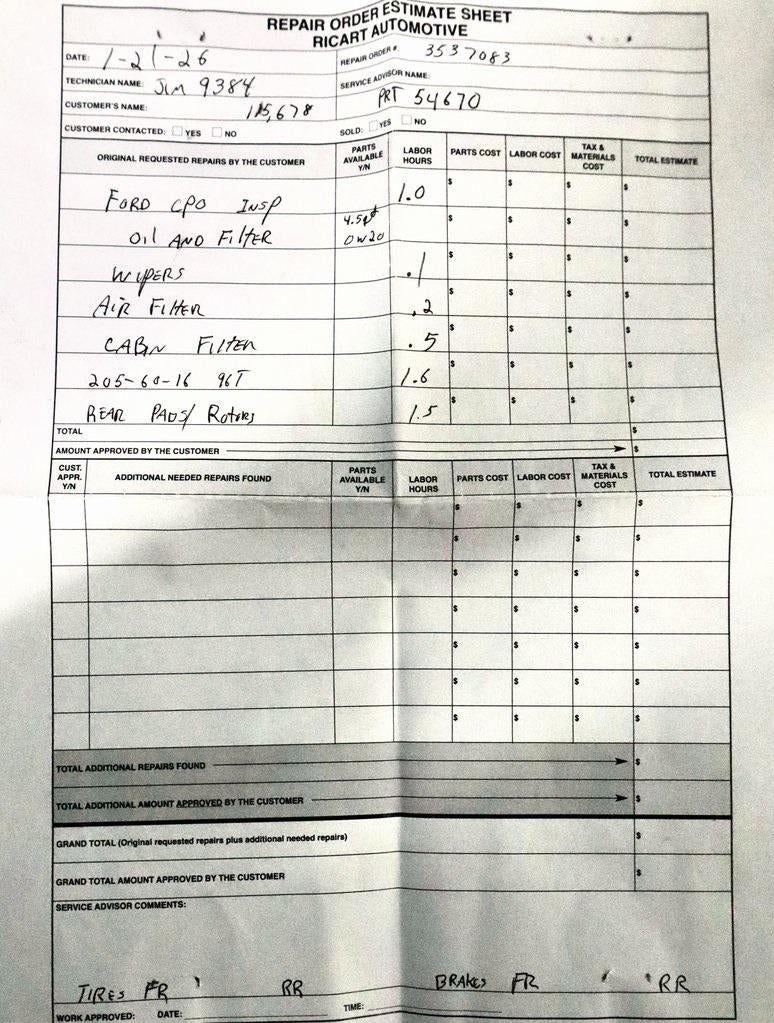 REPAIR ORDER ESTIMATE SHEET
RICART AUTOMOTIVE
DATE: 1-21-26 REPAIR ORDER #: 3537083
TECHNICIAN NAME: Jim 9384 SERVICE ADVISOR NAME:
CUSTOMER'S NAME: 115,678 PRT 54670
CUSTOMER CONTACTED: YES NO SOLD: YES NO
ORIGINAL REQUESTED REPAIRS BY THE CUSTOMER PARTS AVAILABLE Y/N LABOR HOURS PARTS COST LABOR COST TAX & MATERIALS COST TOTAL ESTIMATE
FORD CPO INSP 1.0 $ $ $ $
Oil AND FILTER 4.5qt 0W20 $ $ $ $
WIPERS .1 $ $ $ $
AIR FILTER .2 $ $ $ $
CABIN FILTER .5 $ $ $ $
205-60-16 96T 1.6 $ $ $ $
REAR PADS/ Rotors 1.5 $ $ $ $
TOTAL $
AMOUNT APPROVED BY THE CUSTOMER $
CUST. APPR. Y/N ADDITIONAL NEEDED REPAIRS FOUND PARTS AVAILABLE Y/N LABOR HOURS PARTS COST LABOR COST TAX & MATERIALS COST TOTAL ESTIMATE
$ $ $ $
$ $ $ $
$ $ $ $
$ $ $ $
$ $ $ $
$ $ $ $
$ $ $ $
TOTAL ADDITIONAL REPAIRS FOUND $
TOTAL ADDITIONAL AMOUNT APPROVED BY THE CUSTOMER $
GRAND TOTAL (Original requested repairs plus additional needed repairs) $
GRAND TOTAL AMOUNT APPROVED BY THE CUSTOMER $
SERVICE ADVISOR COMMENTS:
TIRES FR RR BRAKES FR RR
WORK APPROVED: DATE: TIME: